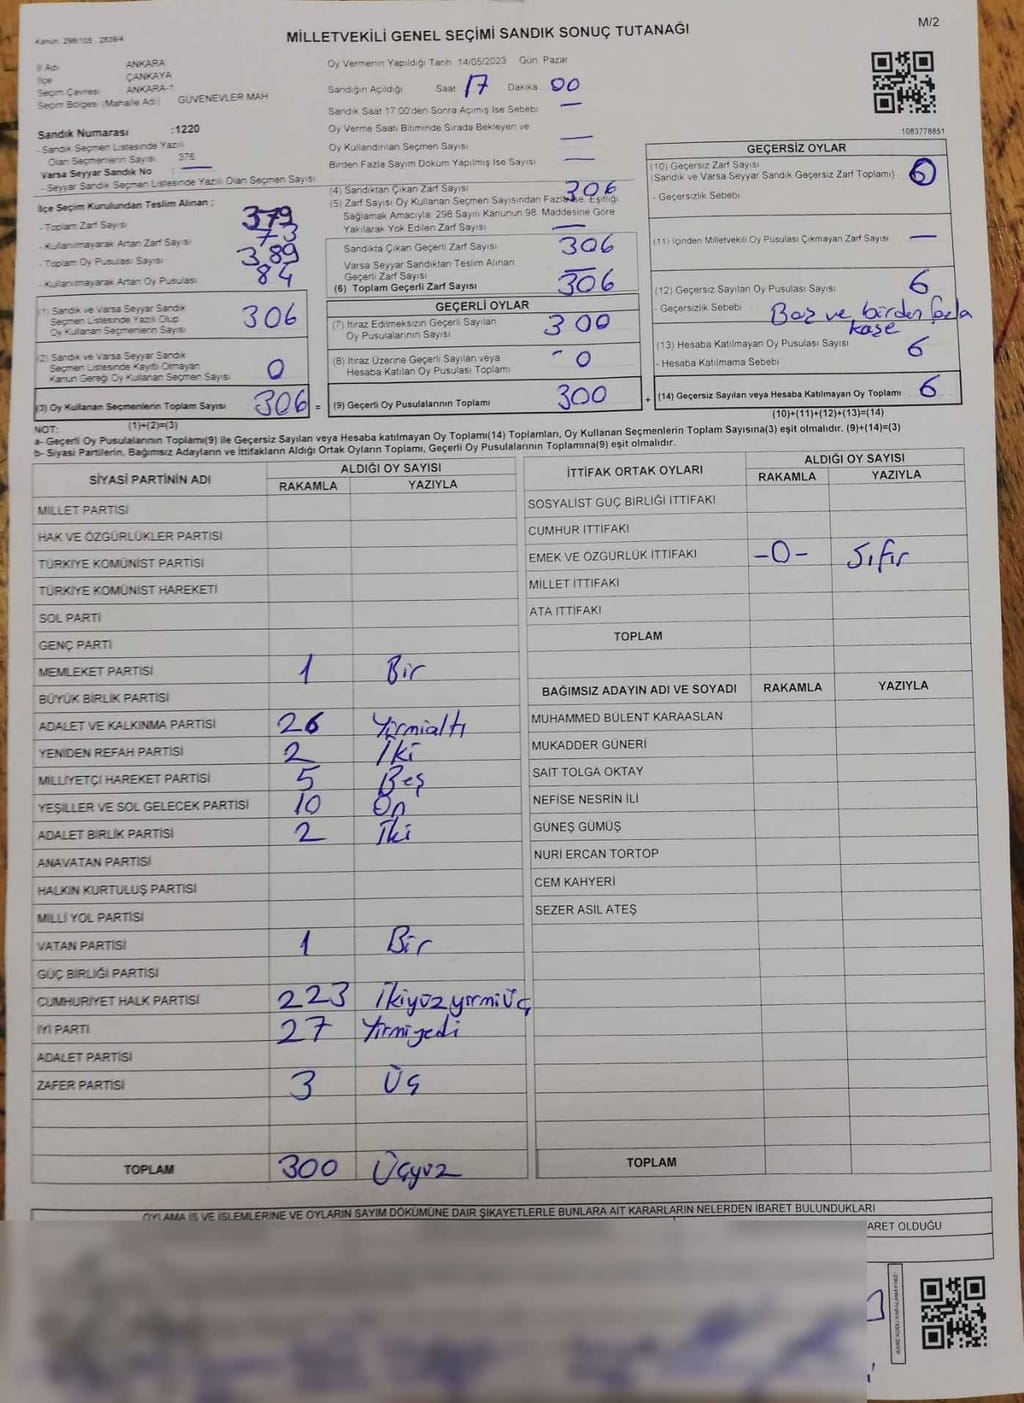 Kanun: 298/105 : 2839/4
MİLLETVEKİLİ GENEL SEÇİMİ SANDIK SONUÇ TUTANAĞI
M/2
İl Adı ANKARA
İlçe ÇANKAYA
Seçim Çevresi ANKARA-1
Seçim Bölgesi (Mahalle Adı) GÜVENEVLER MAH.
Sandık Numarası :1220
- Sandık Seçmen Listesinde Yazılı
Olan Seçmenlerin Sayısı 376
Varsa Seyyar Sandık No : —
- Seyyar Sandık Seçmen Listesinde Yazılı Olan Seçmen Sayısı
İlçe Seçim Kurulundan Teslim Alınan :
- Toplam Zarf Sayısı 379
- Kullanılmayarak Artan Zarf Sayısı 73
- Toplam Oy Pusulası Sayısı 389
- Kullanılmayarak Artan Oy Pusulası 84
(1) Sandık ve Varsa Seyyar Sandık
Seçmen Listesinde Yazılı Olup
Oy Kullanan Seçmenlerin Sayısı 306
(2) Sandık ve Varsa Seyyar Sandık
Seçmen Listesinde Kayıtlı Olmayan
Kanun Gereği Oy Kullanan Seçmen Sayısı 0
(3) Oy Kullanan Seçmenlerin Toplam Sayısı 306 =
(1)+(2)=(3)
Oy Vermenin Yapıldığı Tarih 14/05/2023 Gün: Pazar
Sandığın Açıldığı Saat 17 Dakika 00
Sandık Saat 17:00'den Sonra Açımış İse Sebebi —
Oy Verme Saati Bitiminde Sırada Bekleyen ve
Oy Kullandırılan Seçmen Sayısı —
Birden Fazla Sayım Döküm Yapılmış İse Sayısı —
(4) Sandıktan Çıkan Zarf Sayısı 306
(5) Zarf Sayısı Oy Kullanan Seçmen Sayısından Fazla İse, Eşitliği
Sağlamak Amacıyla: 298 Sayılı Kanunun 98. Maddesine Göre
Yakılarak Yok Edilen Zarf Sayısı —
Sandıkta Çıkan Geçerli Zarf Sayısı 306
Varsa Seyyar Sandıktan Teslim Alınan
Geçerli Zarf Sayısı —
(6) Toplam Geçerli Zarf Sayısı 306
GEÇERLİ OYLAR
(7) İtiraz Edilmeksizin Geçerli Sayılan
Oy Pusulalarının Sayısı 300
(8) İtiraz Üzerine Geçerli Sayılan veya
Hesaba Katılan Oy Pusulası Toplamı 0
(9) Geçerli Oy Pusulalarının Toplamı 300 +
1083778851
GEÇERSİZ OYLAR
(10) Geçersiz Zarf Sayısı
(Sandık ve Varsa Seyyar Sandık Geçersiz Zarf Toplamı)
- Geçersizlik Sebebi
(11) İçinden Milletvekili Oy Pusulası Çıkmayan Zarf Sayısı —
(12) Geçersiz Sayılan Oy Pusulası Sayısı 6
- Geçersizlik Sebebi Boş ve birden fazla
kaşe
(13) Hesaba Katılmayan Oy Pusulası Sayısı 6
- Hesaba Katılmama Sebebi
(14) Geçersiz Sayılan veya Hesaba Katılmayan Oy Toplamı 6
(10)+(11)+(12)+(13)=(14)
NOT:
a- Geçerli Oy Pusulalarının Toplamı(9) ile Geçersiz Sayılan veya Hesaba katılmayan Oy Toplamı(14) Toplamları, Oy Kullanan Seçmenlerin Toplam Sayısına(3) eşit olmalıdır. (9)+(14)=(3)
b- Siyasi Partilerin, Bağımsız Adayların ve İttifakların Aldığı Ortak Oyların Toplamı, Geçerli Oy Pusulalarının Toplamına(9) eşit olmalıdır.
SİYASİ PARTİNİN ADI ALDIĞI OY SAYISI
RAKAMLA YAZIYLA
MİLLET PARTİSİ
HAK VE ÖZGÜRLÜKLER PARTİSİ
TÜRKİYE KOMÜNİST PARTİSİ
TÜRKİYE KOMÜNİST HAREKETİ
SOL PARTİ
GENÇ PARTİ
MEMLEKET PARTİSİ 1 Bir
BÜYÜK BİRLİK PARTİSİ
ADALET VE KALKINMA PARTİSİ 26 Yirmialtı
YENİDEN REFAH PARTİSİ 2 İki
MİLLİYETÇİ HAREKET PARTİSİ 5 Beş
YEŞİLLER VE SOL GELECEK PARTİSİ 10 On
ADALET BİRLİK PARTİSİ 2 İki
ANAVATAN PARTİSİ
HALKIN KURTULUŞ PARTİSİ
MİLLİ YOL PARTİSİ
VATAN PARTİSİ 1 Bir
GÜÇ BİRLİĞİ PARTİSİ
CUMHURİYET HALK PARTİSİ 223 İkiyüzyirmiüç
İYİ PARTİ 27 Yirmiyedi
ADALET PARTİSİ
ZAFER PARTİSİ 3 Üç
TOPLAM 300 Üçyüz
İTTİFAK ORTAK OYLARI ALDIĞI OY SAYISI
RAKAMLA YAZIYLA
SOSYALİST GÜÇ BİRLİĞİ İTTİFAKI
CUMHUR İTTİFAKI
EMEK VE ÖZGÜRLÜK İTTİFAKI -0- Sıfır
MİLLET İTTİFAKI
ATA İTTİFAKI
TOPLAM
BAĞIMSIZ ADAYIN ADI VE SOYADI RAKAMLA YAZIYLA
MUHAMMED BÜLENT KARAASLAN
MUKADDER GÜNERİ
SAİT TOLGA OKTAY
NEFİSE NESRİN İLİ
GÜNEŞ GÜMÜŞ
NURİ ERCAN TORTOP
CEM KAHYERİ
SEZER ASİL ATEŞ
TOPLAM
OYLAMA İŞ VE İŞLEMLERİNE VE OYLARIN SAYIM DÖKÜMÜNE DAİR ŞİKAYETLERLE BUNLARA AİT KARARLARIN NELERDEN İBARET BULUNDUKLARI
ARET OLDUĞU